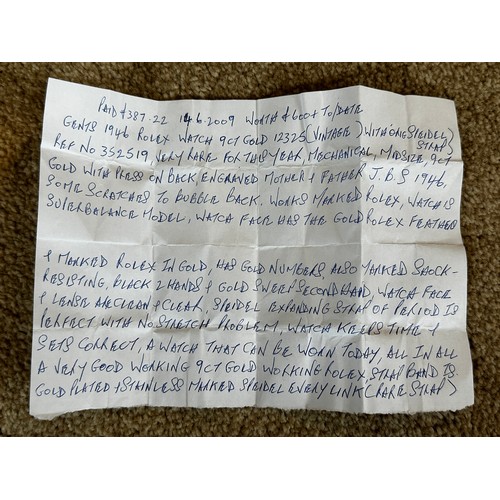 PAID £387.22 14.6.2009 WORTH £600+ TO/DATE
GENTS 1946 ROLEX WATCH 9CT GOLD 12325 (VINTAGE) WITH ORIG SPEIDEL STRAP)
REF NO 352519, VERY RARE FOR THIS YEAR, MECHANICAL, MIDSIZE, 9CT
GOLD WITH PRESS ON BACK, ENGRAVED MOTHER & FATHER J.B.S 1946,
SOME SCRATCHES TO BUBBLE BACK. WORKS MARKED ROLEX, WATCH IS
SUPERBALANCE MODEL, WATCH FACE HAS THE GOLD ROLEX FEATHER
& MARKED ROLEX IN GOLD, HAS GOLD NUMBERS, ALSO MARKED SHOCK-
RESISTING, BLACK 2 HANDS & GOLD SWEEP SECOND HAND, WATCH FACE
& LENSE ARE CLEAN & CLEAR, SPEIDEL EXPANDING STRAP OF PERIOD IS
PERFECT, WITH NO STRETCH PROBLEM, WATCH KEEPS TIME &
SETS CORRECT, A WATCH THAT CAN BE WORN TODAY, ALL IN ALL
A VERY GOOD WORKING 9CT GOLD WORKING ROLEX, STRAP BAND IS
GOLD PLATED & STAINLESS MARKED SPEIDEL EVERY LINK (RARE STRAP)